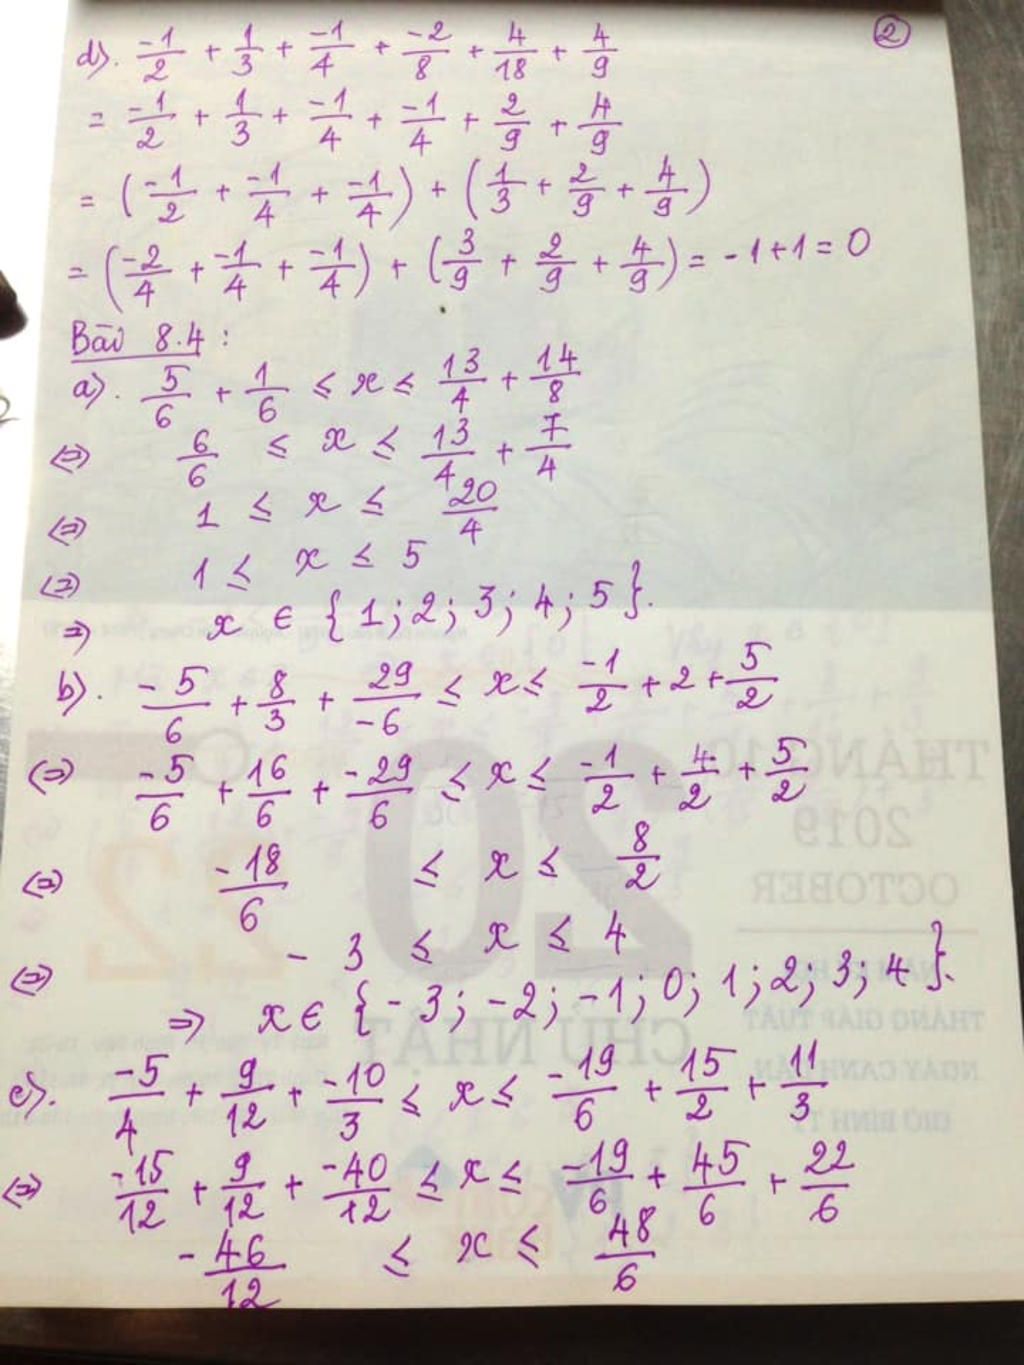 ②
d). -1/2 + 1/3 + -1/4 + -2/8 + 4/18 + 4/9
= -1/2 + 1/3 + -1/4 + -1/4 + 2/9 + 4/9
= (-1/2 + -1/4 + -1/4) + (1/3 + 2/9 + 4/9)
= (-2/4 + -1/4 + -1/4) + (3/9 + 2/9 + 4/9) = -1+1 = 0
Bài 8.4 :
a). 5/6 + 1/6 ≤ x ≤ 13/4 + 14/8
⇔ 6/6 ≤ x ≤ 13/4 + 7/4
⇔ 1 ≤ x ≤ 20/4
⇔ 1 ≤ x ≤ 5
⇒ x ∈ {1 ; 2 ; 3 ; 4 ; 5}.
b). -5/6 + 8/3 + 29/-6 ≤ x ≤ -1/2 + 2 + 5/2
⇔ -5/6 + 16/6 + -29/6 ≤ x ≤ -1/2 + 4/2 + 5/2
⇔ -18/6 ≤ x ≤ 8/2
⇔ -3 ≤ x ≤ 4
⇒ x ∈ {-3 ; -2 ; -1 ; 0 ; 1 ; 2 ; 3 ; 4}.
c). -5/4 + 9/12 + -10/3 ≤ x ≤ -19/6 + 15/2 + 11/3
⇔ -15/12 + 9/12 + -40/12 ≤ x ≤ -19/6 + 45/6 + 22/6
-46/12 ≤ x ≤ 48/6
THÁNG 10
2019
OCTOBER
20
CHỦ NHẬT
THÁNG GIÁP TUẤT
NGÀY CANH DẦN
GIỜ BÍNH TÝ